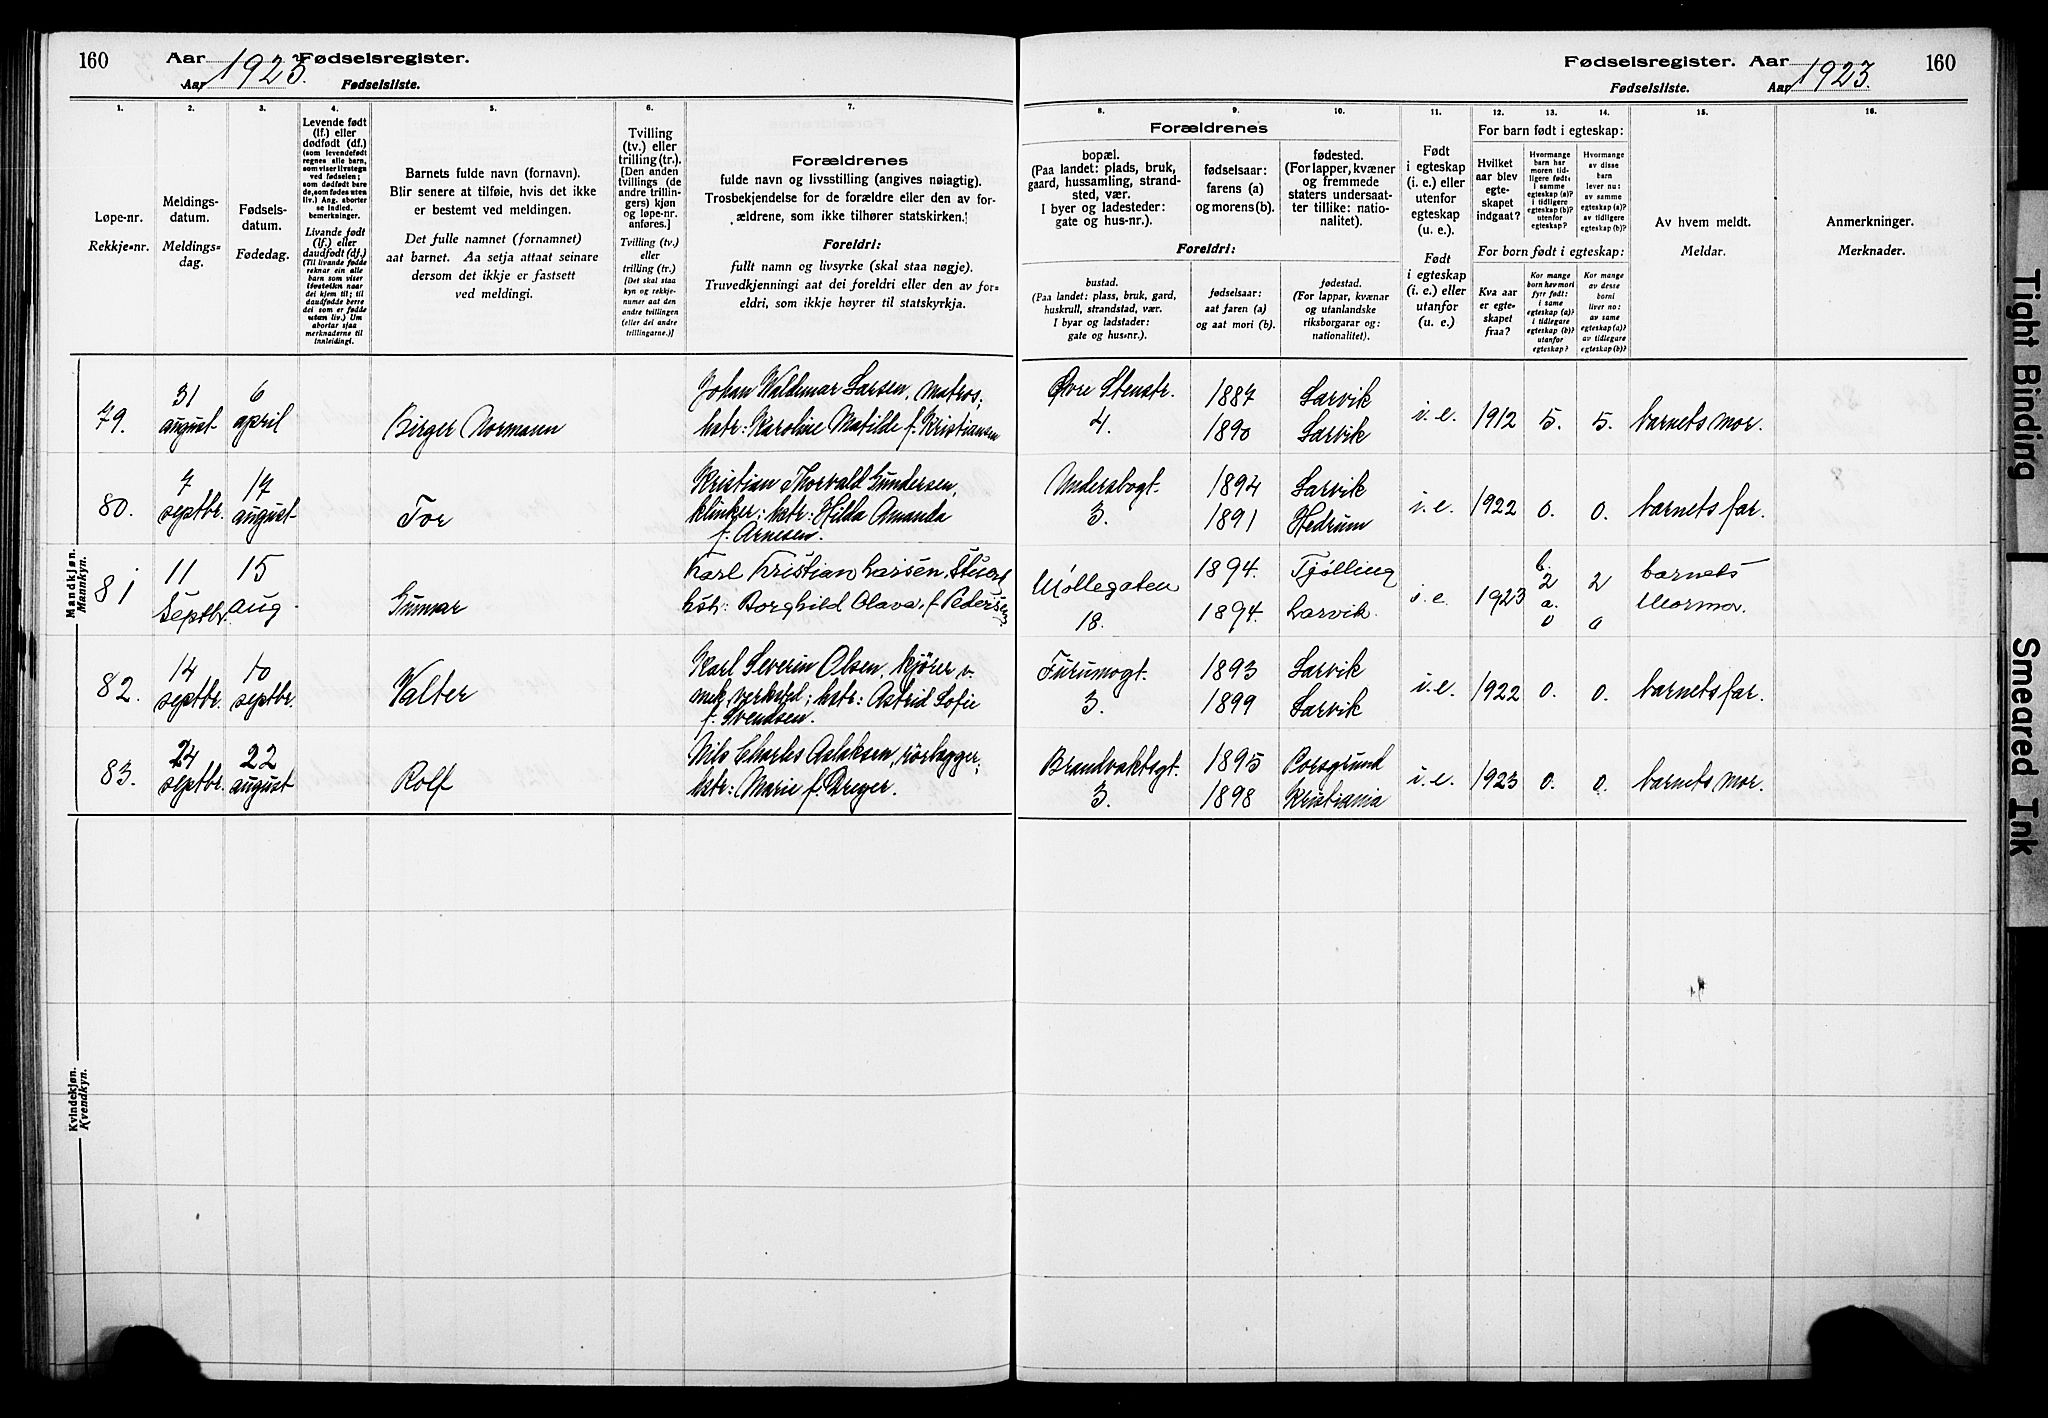 160
Aar 1923. Fødselsregister.
Aar Fødselsliste.
1. 2. 3. 4. 5. 6. 7.
Løpe-nr.
Rekkje-nr.
Meldings-
datum.
Meldings-
dag.
Fødsels-
datum.
Fødedag.
Levende født
(lf.) eller
dødfødt (df.)
(som levendefødt
regnes alle barn,
som viser livstegn
ved fødselen;
som dødfødt bare
de, som fødes uten
liv.) Ang. aborter
se indled.
bemerkninger.
Livande født
(lf.) eller
daudfødt (df.)
(Til livande fødde
reknar ein alle
barn som viser
livsteikn naar
dei kjem til; til
daudfødde berre
dei som er fødde
utan liv.) Um
abortar sjaa
merknaderne til
innleidingi.
Barnets fulde navn (fornavn).
Blir senere at tilføie, hvis det ikke
er bestemt ved meldingen.
Det fulle namnet (fornamnet)
aat barnet. Aa setja attaat seinare
dersom det ikkje er fastsett
ved meldingi.
Tvilling
(tv.) eller
trilling (tr.).
[Den anden
tvillings (de
andre trillin-
gers) kjøn
og løpe-nr.
anføres.]
Tvilling (tv.)
eller
trilling (tr.)
[Det skal staa
kyn og rekkje-
numer aat den
andre tvillingen
(eller dei andre
trillingarne.)]
Forældrenes
fulde navn og livsstilling (angives nøiagtig).
Trosbekjendelse for de forældre eller den av for-
ældrene, som ikke tilhører statskirken.
Foreldri:
fullt namn og livsyrke (skal staa nøgje).
Truvedkjenningi aat dei foreldri eller den av for-
eldri, som ikkje høyrer til statskyrkja.
Mandkjøn.
Mannkyn.
79.
31
august
6
april
Birger Normann
Johan Waldemar Larsen, matros;
hstr: Karoline Matilde f. Kristiansen
80.
7
septbr.
17
august
Tor
Kristian Thorvald Gundersen,
klinker; hstr: Hilda Amanda
f. Arnesen.
81
11
Septbr.
15
aug.
Gunnar
Karl Kristian Larsen, Stuert
hst: Borghild Olava, f. Pedersen
82.
14
septbr.
10
septbr.
Valter
Karl Severin Olsen, kjører v.
mek. verksted; hstr: Astrid Sofie
f. Svendsen.
83.
24
septbr.
22
august
Rolf
Nils Charles Aslaksen, rørlægger;
hstr: Marie f. Dreyer.
Kvindekjøn.
Kvendkyn.
Fødselsregister. Aar 1923.
160
Fødselsliste. Aar
8. 9. 10. 11. 12. 13. 14. 15. 16.
Forældrenes
bopæl.
(Paa landet: plads, bruk,
gaard, hussamling, strand-
sted, vær.
I byer og ladesteder:
gate og hus-nr.).
fødselsaar:
farens (a)
og morens (b).
fødested.
(For lapper, kvæner
og fremmede
staters undersaat-
ter tillike: natio-
nalitet).
Foreldri:
bustad.
(Paa landet: plass, bruk, gard,
huskrull, strandstad, vær.
I byar og ladstader:
gate og hus-nr.).
fødselsaar:
aat faren (a)
og aat mori (b).
fødestad.
(For lappar, kvænar
og utanlandske
riksborgarar og:
nationalitet).
Født
i egteskap
(i. e.) eller
utenfor
egteskap
(u. e.).
Født
i egteskap
(i. e.) eller
utanfor
(u. e.).
For barn født i egteskap:
Hvilket
aar blev
egte-
skapet
indgaat?
Hvormange
barn har
moren tid-
ligere født:
i samme
egteskap (a)?
i tidligere
egteskap (b)?
utenfor
egteskap?
Hvormange
av disse
barn
lever nu:
av samme
egteskap (a)?
av tidligere
egteskap (b)?
For born født i egteskap:
Kva aar
er egte-
skapet
fraa?
Kor mange
born hev mori
fyrr født:
i same
egteskap (a)?
i tidlegare
egteskap (b)?
utanfor
egteskap?
Kor mange
av desse
borni
liver no:
av same
egteskap (a)?
av tidlegare
egteskap (b)?
Av hvem meldt.
Meldar.
Anmerkninger.
Merknader.
Øvre Stenstr.
4.
1887
1890
Larvik
Larvik
i. e. 1912 5. 5. barnets mor.
3.
1894
1891
Larvik
Hedrum
i. e. 1922 0. 0. barnets far.
Møllegaten
18.
1894.
1894.
Tjølling
Larvik
i. e. 1923
b.
2
a.
0
2
0
barnets
Mormor.
Furumogt.
3.
1893
1899
Larvik
Larvik
i. e. 1922 0. 0. barnets far.
Brandvaktsgt.
3.
1895
1898
Porsgrund
Kristiania
i. e. 1923 0. 0. barnets mor.
Tight Binding
Smeared Ink